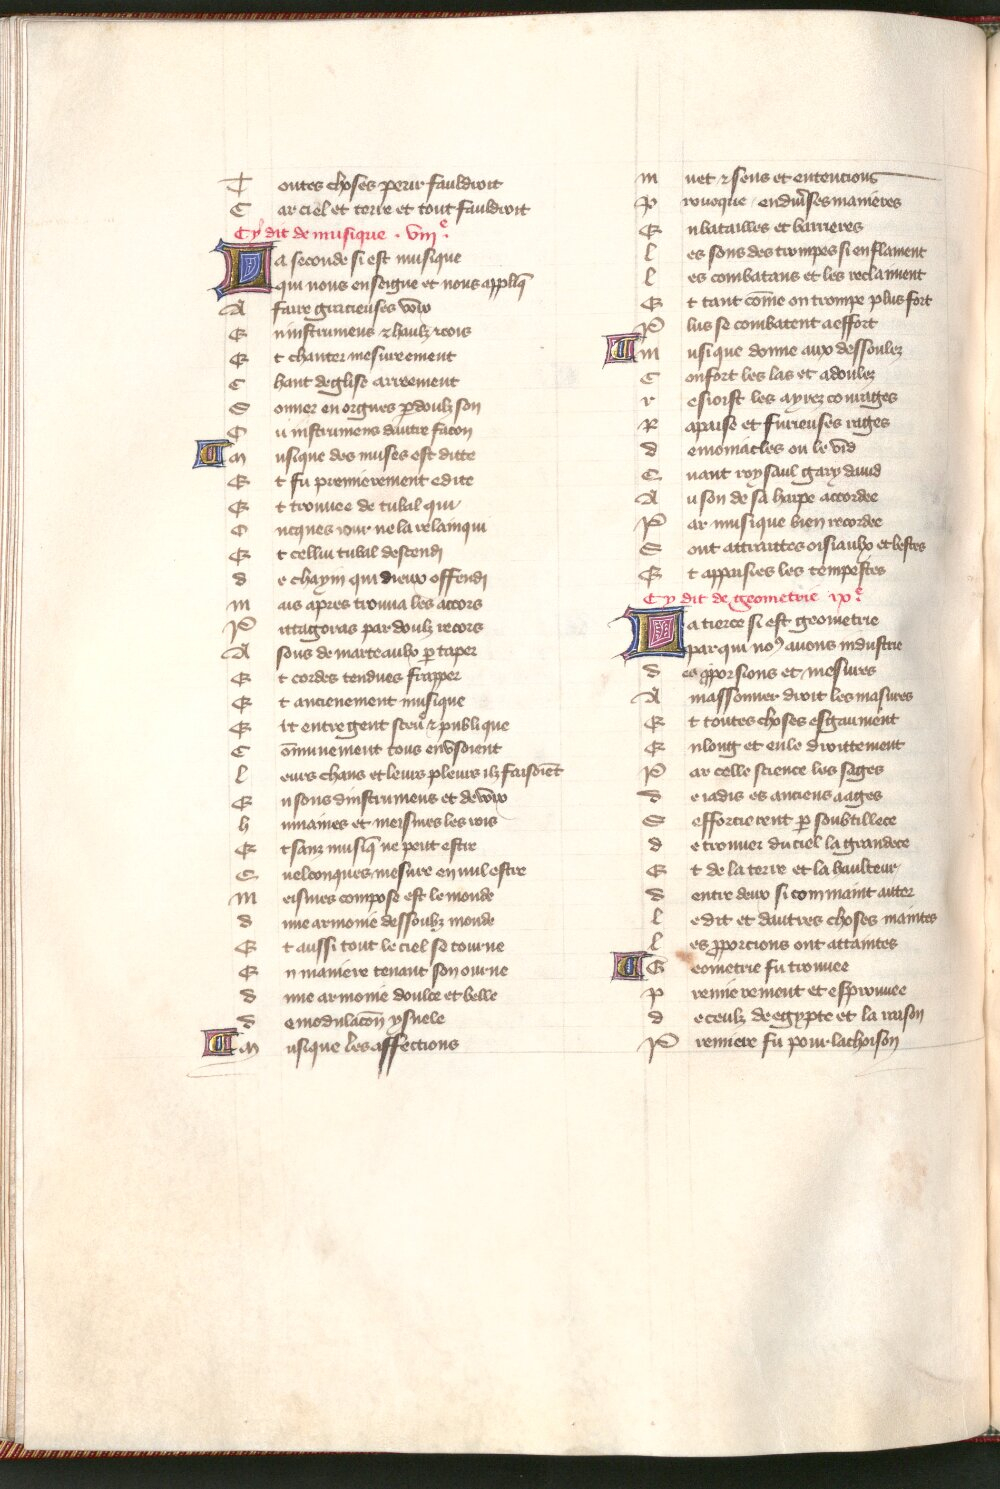 Toutes choses perir fauldroit
Car ciel et terre et tout fauldroit
Cy dit de musique . viije.
La seconde si est musique
qui nous enseigne et nous appliq̄
A faire gracieuses
En instrumens & haulz & cois
Et chanter mesureement
Chant deglise arreement
Sonner en orgues p doulz son
Ou instrumens dautre facon
Musique des muses est ditte
Et fu premierement edite
Et trouuee de tubal qui
Oncques iour ne la relainqui
Et cellui tubal descendi
de chayin qui dieux offendi
mais apres trouua les accors
Pittagoras par doulz recors
A sons de marteaulx p taper
Et cordes tendues frapper
Et anciennement musique
Ert entre gent sceu & publique
Cōmunement tous enusoient
leurs chans et leurs pleurs ilz faisoiēt
En sons dinstrumens et de voix
humaines et meismes les rois
Et sanz musiq̄ ne peut estre
Quelconques mesure en nul estre
Meismes compose est le monde
dune armonie dessoubz monde
Et aussi tout le ciel se tourne
En maniere tenant son ourne
dune armonie doulce et belle
de modulacōn ysnele
Musique les affections
muet & sens et entencions
Prouoque en diuses manieres
En batailles et barrieres
les sons des trompes si enflament
les combatans et les reclaiment
Et tant cōme on trompe plus fort
Plus se combatent a effort
Musique donne aux dessoulez
Confort les las et adoulez
resiorst les ayrez courages
Rapaise et furieuses rages
demoniacles ou le vid
Quant roy saul gary dauid
Au son de sa harpe accordee
Par musique bien recordee
Sont attraittes oisiaulx et bestes
Et appaisies les tempestes
Cy dit de geometrie ixe.
La tierce si est geometrie
par qui noꝰ auons industrie
des pporsions et mesures
A massonner droit les masures
Et toutes choses esgaument
En long et en le droittement
Par celle science les sages
de iadis es anciens aages
Sefforcierent p soubtillece
de trouuer du ciel la grandece
Et de la terre et la haulteur
dentre deux si com maint auter
ledit et dautres choses maintes
les pporcions ont attaintes
Geometrie fu trouuee
premierement et esprouuee
de ceulz degypte et la raison
Premiere fu pour lachoison